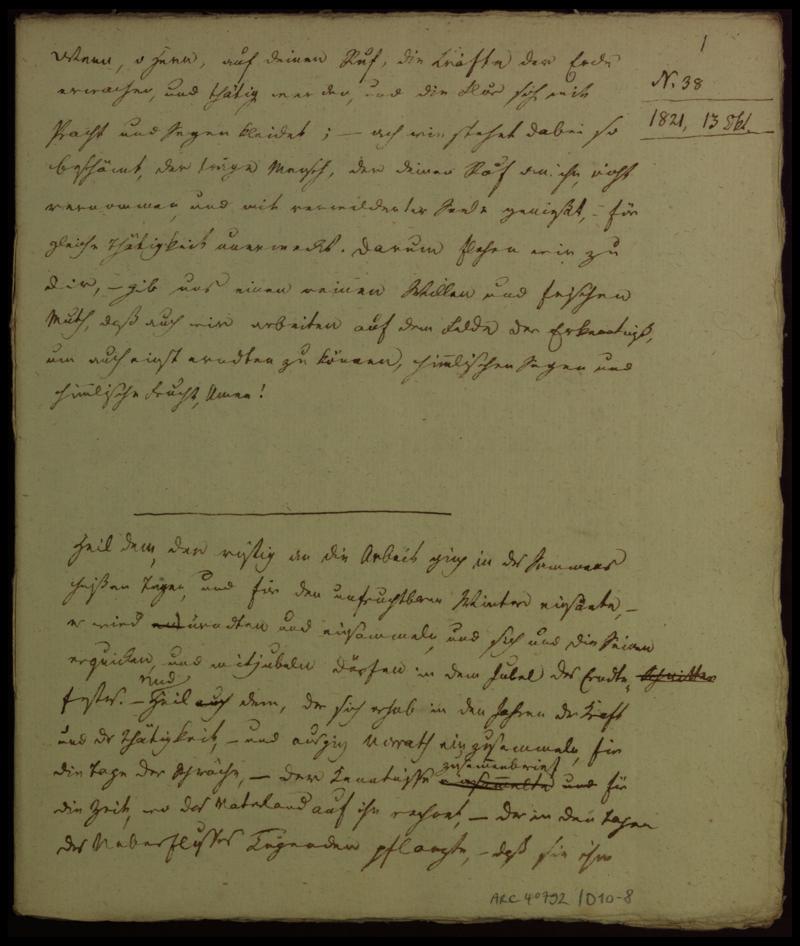 1
N. 38
1821, 13 Okt.
Wenn, o Herr, auf deinen Ruf, die Kräfte der Erde
erwachen, und thätig werden, und die Flur sich mit
Pracht und Segen kleidet; – ach wie stehet dabei so
beschämt, der träge Mensch, der deinen Ruf an ihn, nicht
vernommen, und mit verwilderter Seele genießt, – für
gleiche Thätigkeit unerweckt. Darum flehen wir zu
Dir, – gib uns einen reinen Willen und frischen
Muth, daß auch wir arbeiten auf dem Felde der Erkenntniß,
um auch einst erndten zu können, himlischen Segen und
himlische Frucht, Amen!
Heil dem, der rüstig an die Arbeit ging in des Sommers
heißen Tagen, und für den unfruchtbaren Winter einsäete, –
er wird ärndten und einsammeln, und sich und die Seinen
erquicken, und mitjubeln dürfen in dem Jubel des Erndte- Schnitter
festes. – Und Heil auch dem, der sich erhob in den Jahren der Kraft
und der Thätigkeit, – und ausging Vorrath einzusammeln, für
die Tage der Schwäche, – der Kenntnisse zusammenbrachte einsammelte und für
die Zeit, wo das Vaterland auf ihn rechnet, – der in den Tagen
des Ueberflusses Tugenden pflanzte, – daß sie ihm
ARC 4° 792 / D10-8